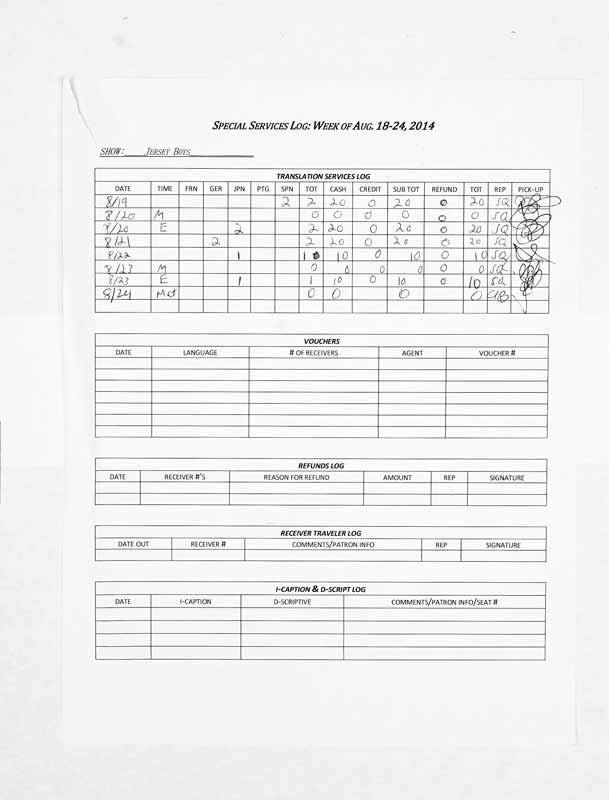 SPECIAL SERVICES LOG: WEEK OF AUG. 18-24, 2014
SHOW: JERSEY BOYS
TRANSLATION SERVICES LOG
DATE TIME FRN GER JPN PTG SPN TOT CASH CREDIT SUB TOT REFUND TOT REP PICK-UP
8/19 2 2 20 0 20 0 20 SQ
8/20 M 0 0 0 0 0 0 SQ
8/20 E 2 2 20 0 20 0 20 SQ
8/21 2 2 20 0 20 0 20 SQ
8/22 1 1 10 0 10 0 10 SQ
8/23 M 0 0 0 0 0 0 SQ
8/23 E 1 1 10 0 10 0 10 SQ
8/24 Mat 0 0 0 0
VOUCHERS
DATE LANGUAGE # OF RECEIVERS AGENT VOUCHER #
REFUNDS LOG
DATE RECEIVER #'S REASON FOR REFUND AMOUNT REP SIGNATURE
RECEIVER TRAVELER LOG
DATE OUT RECEIVER # COMMENTS/PATRON INFO REP SIGNATURE
I-CAPTION & D-SCRIPT LOG
DATE I-CAPTION D-SCRIPTIVE COMMENTS/PATRON INFO/SEAT #